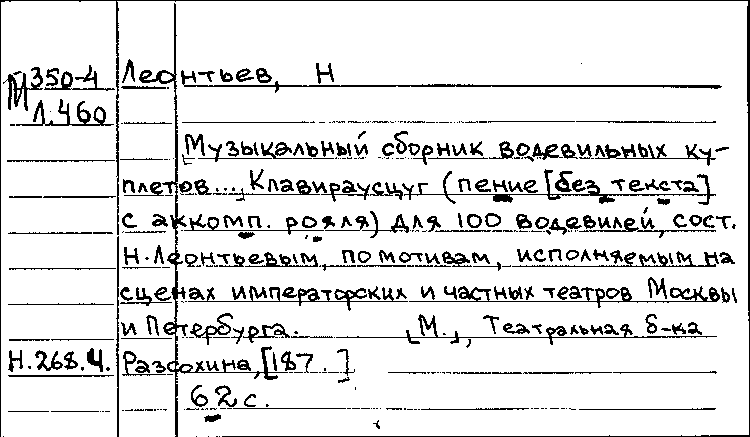 М 350-4 Леонтьев, Н
Л.460
Музыкальный сборник водевильных ку-
плетов..., Клавираусцуг (пение [без текста]
с аккомп. рояля) для 100 водевилей, сост.
Н. Леонтьевым, по мотивам, исполняемым на
сценах императорских и частных театров Москвы
и Петербурга. [М.], Театральная б-ка
Н.268.4. Разсохина, [187. ]
62 с.